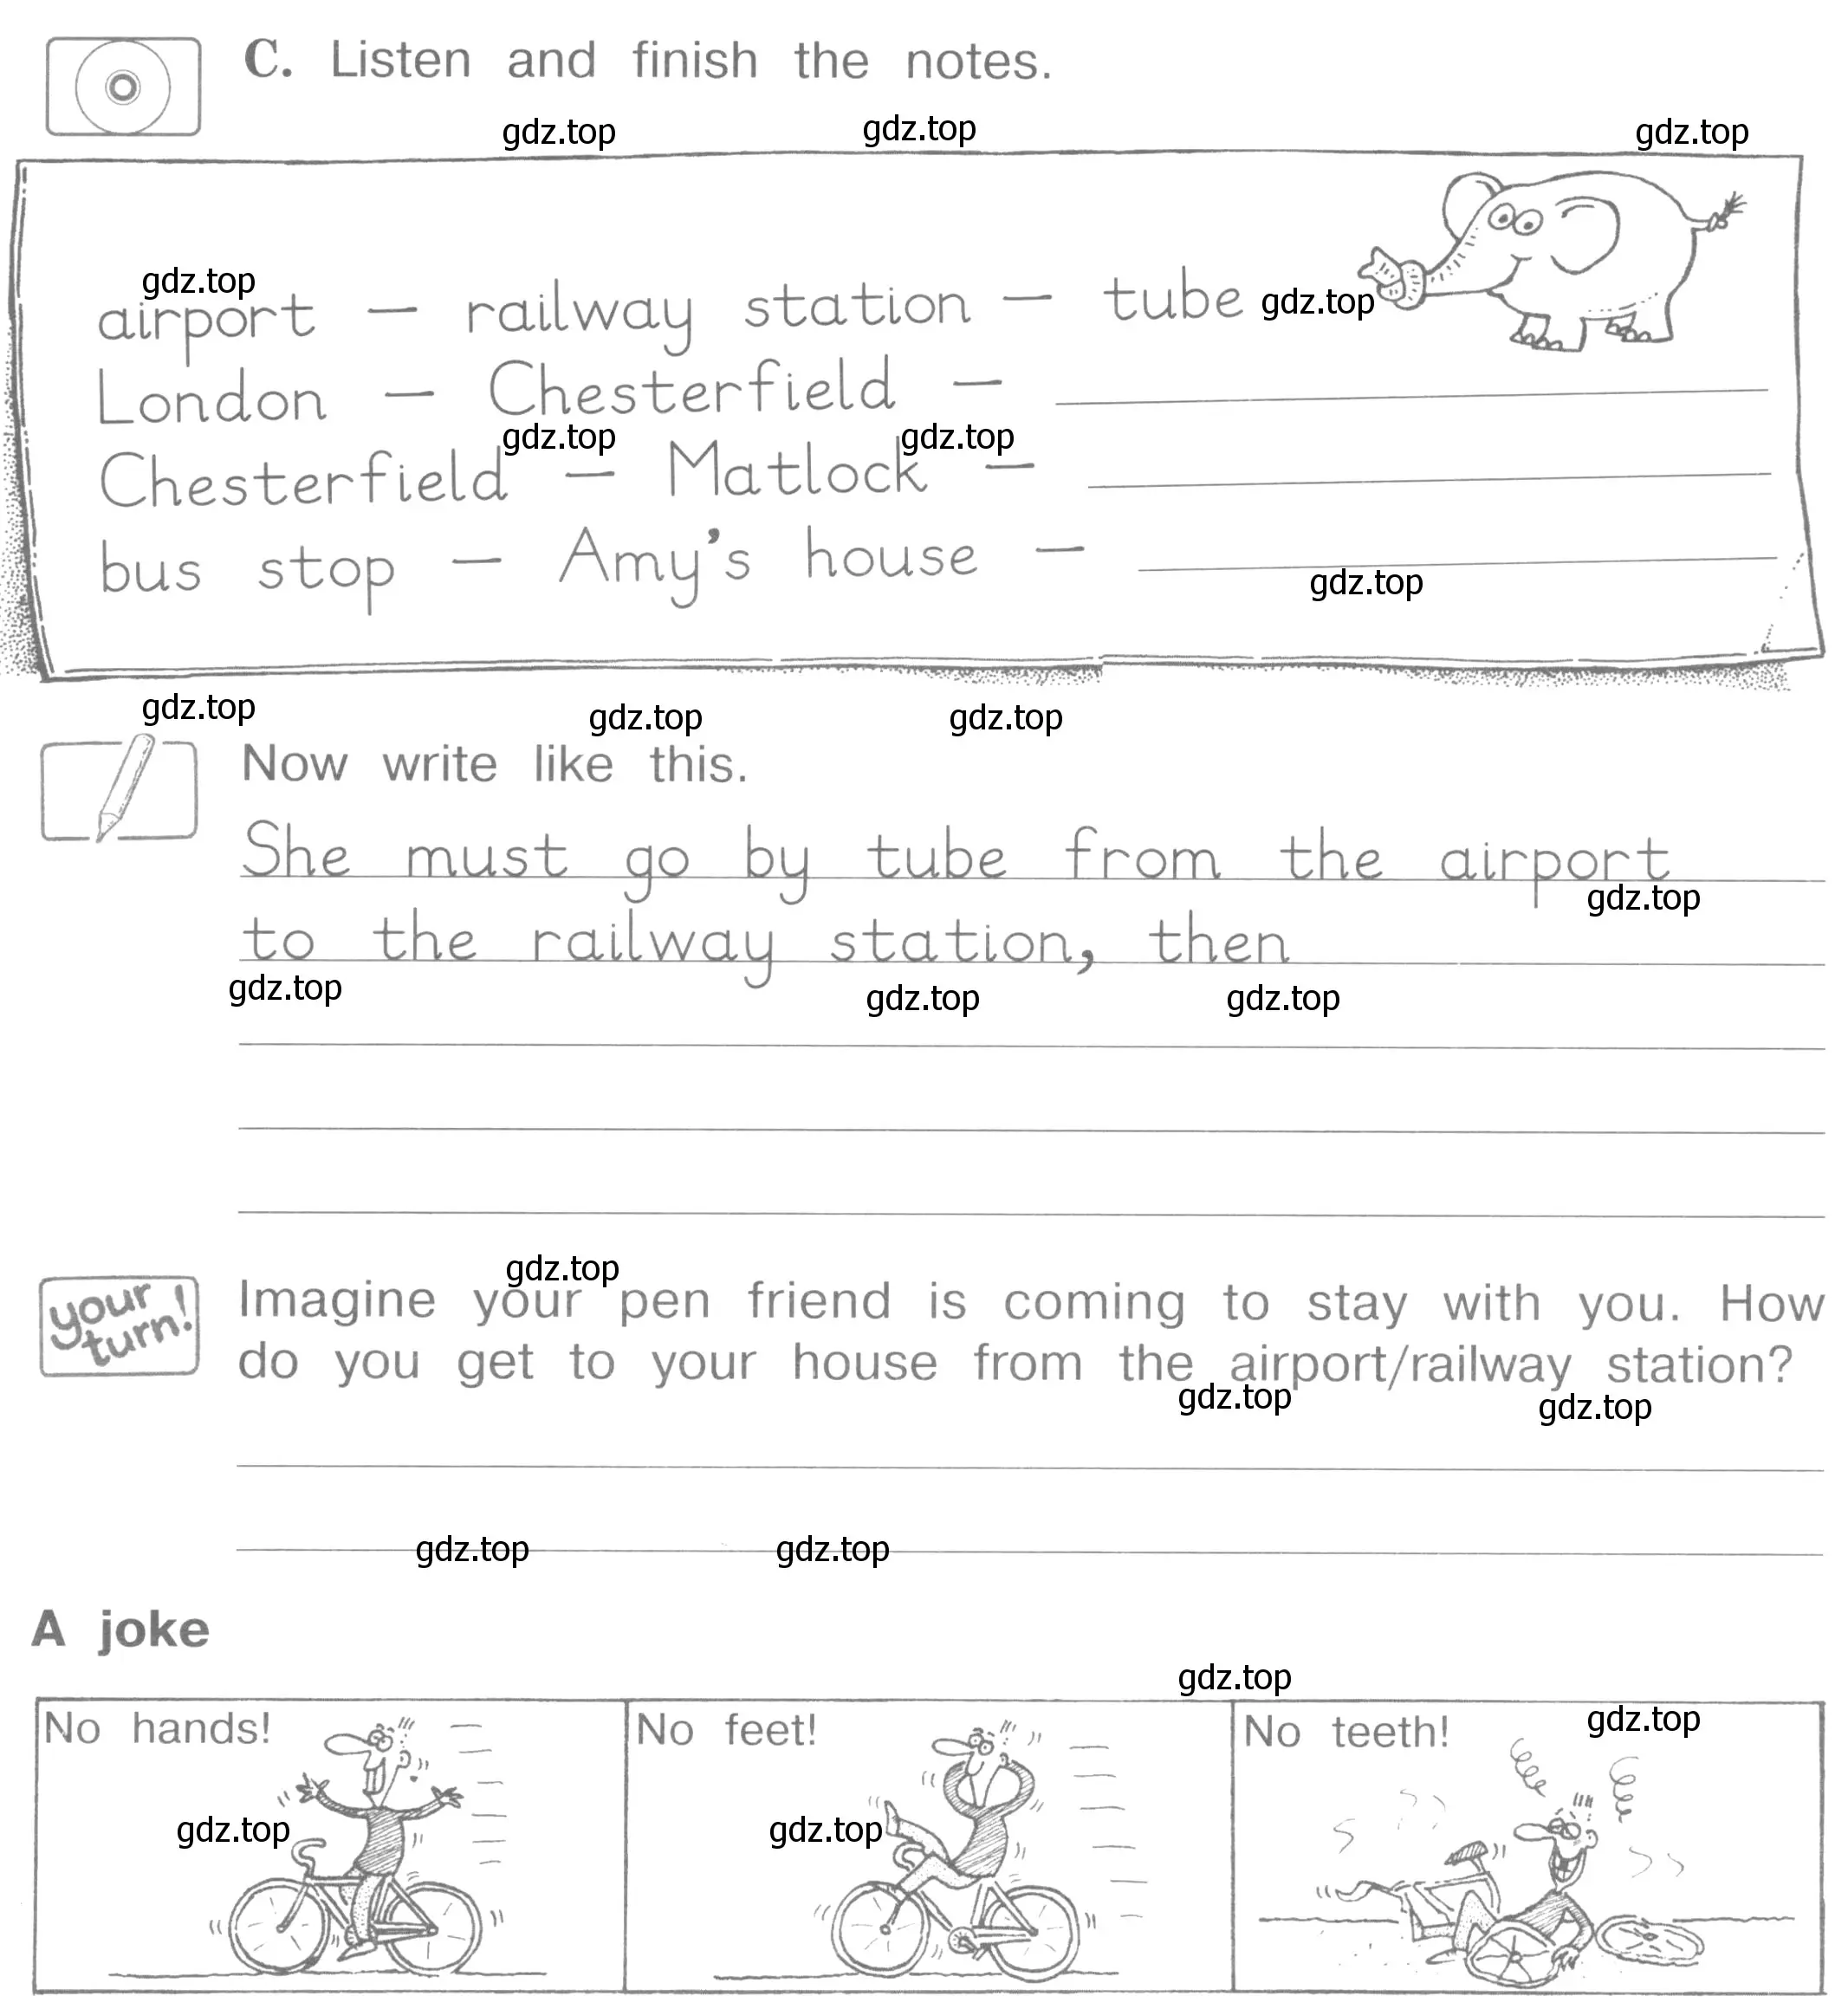 C. Listen and finish the notes.
gdz.top gdz.top gdz.top
gdz.top
airport — railway station — tube gdz.top
London — Chesterfield —
gdz.top gdz.top
Chesterfield — Matlock —
bus stop — Amy's house —
gdz.top
gdz.top gdz.top gdz.top
Now write like this.
She must go by tube from the airport
gdz.top
to the railway station, then
gdz.top gdz.top gdz.top
gdz.top
your turn!
Imagine your pen friend is coming to stay with you. How
do you get to your house from the airport/railway station?
gdz.top gdz.top
gdz.top gdz.top
A joke
gdz.top
gdz.top
No hands! No feet! No teeth!
gdz.top gdz.top